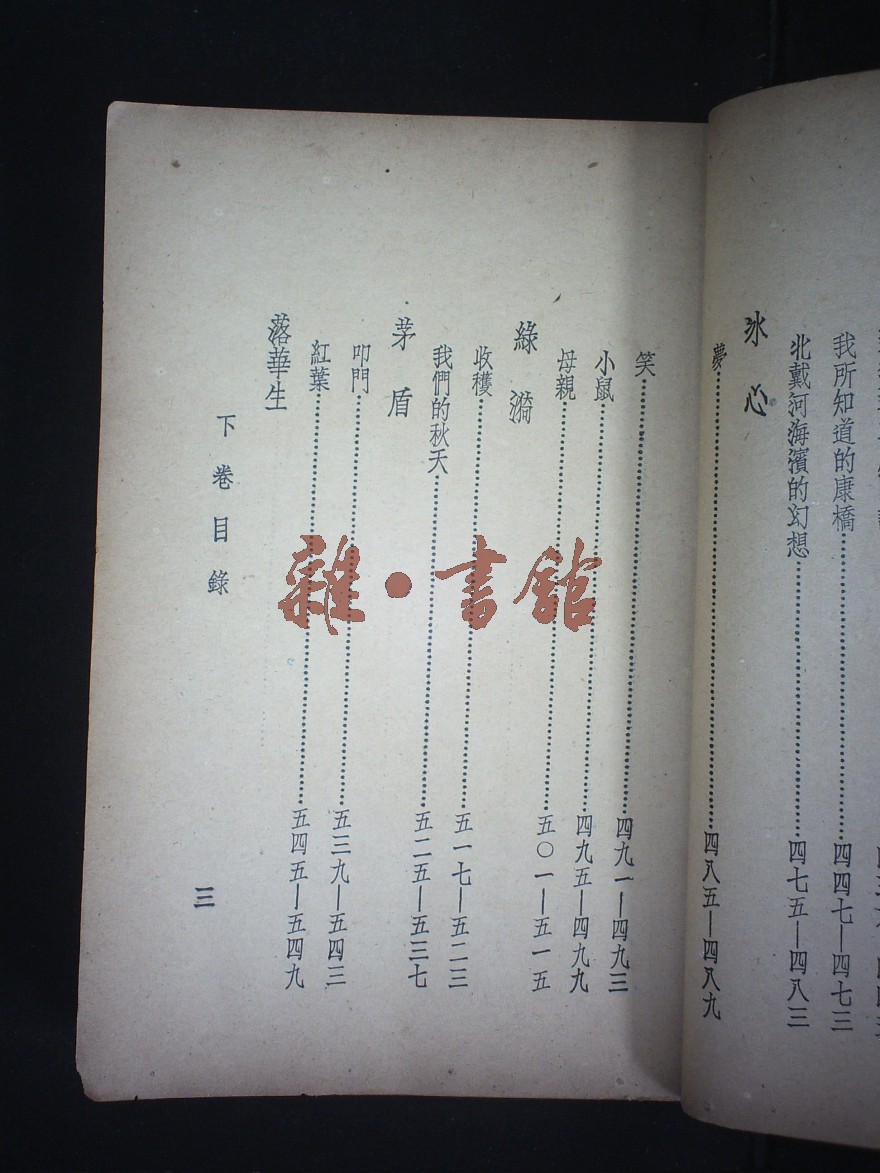 我所知道的康橋……四四七—四七三
北戴河海濱的幻想……四七五—四八三
冰心
夢……四八五—四八九
笑……四九一—四九三
小鼠……四九五—四九九
母親……五〇一—五一五
綠漪
收穫……五一七—五二三
我們的秋天……五二五—五三七
茅盾
叩門……五三九—五四三
紅葉……五四五—五四九
落華生
下卷目錄
三
雜·書館